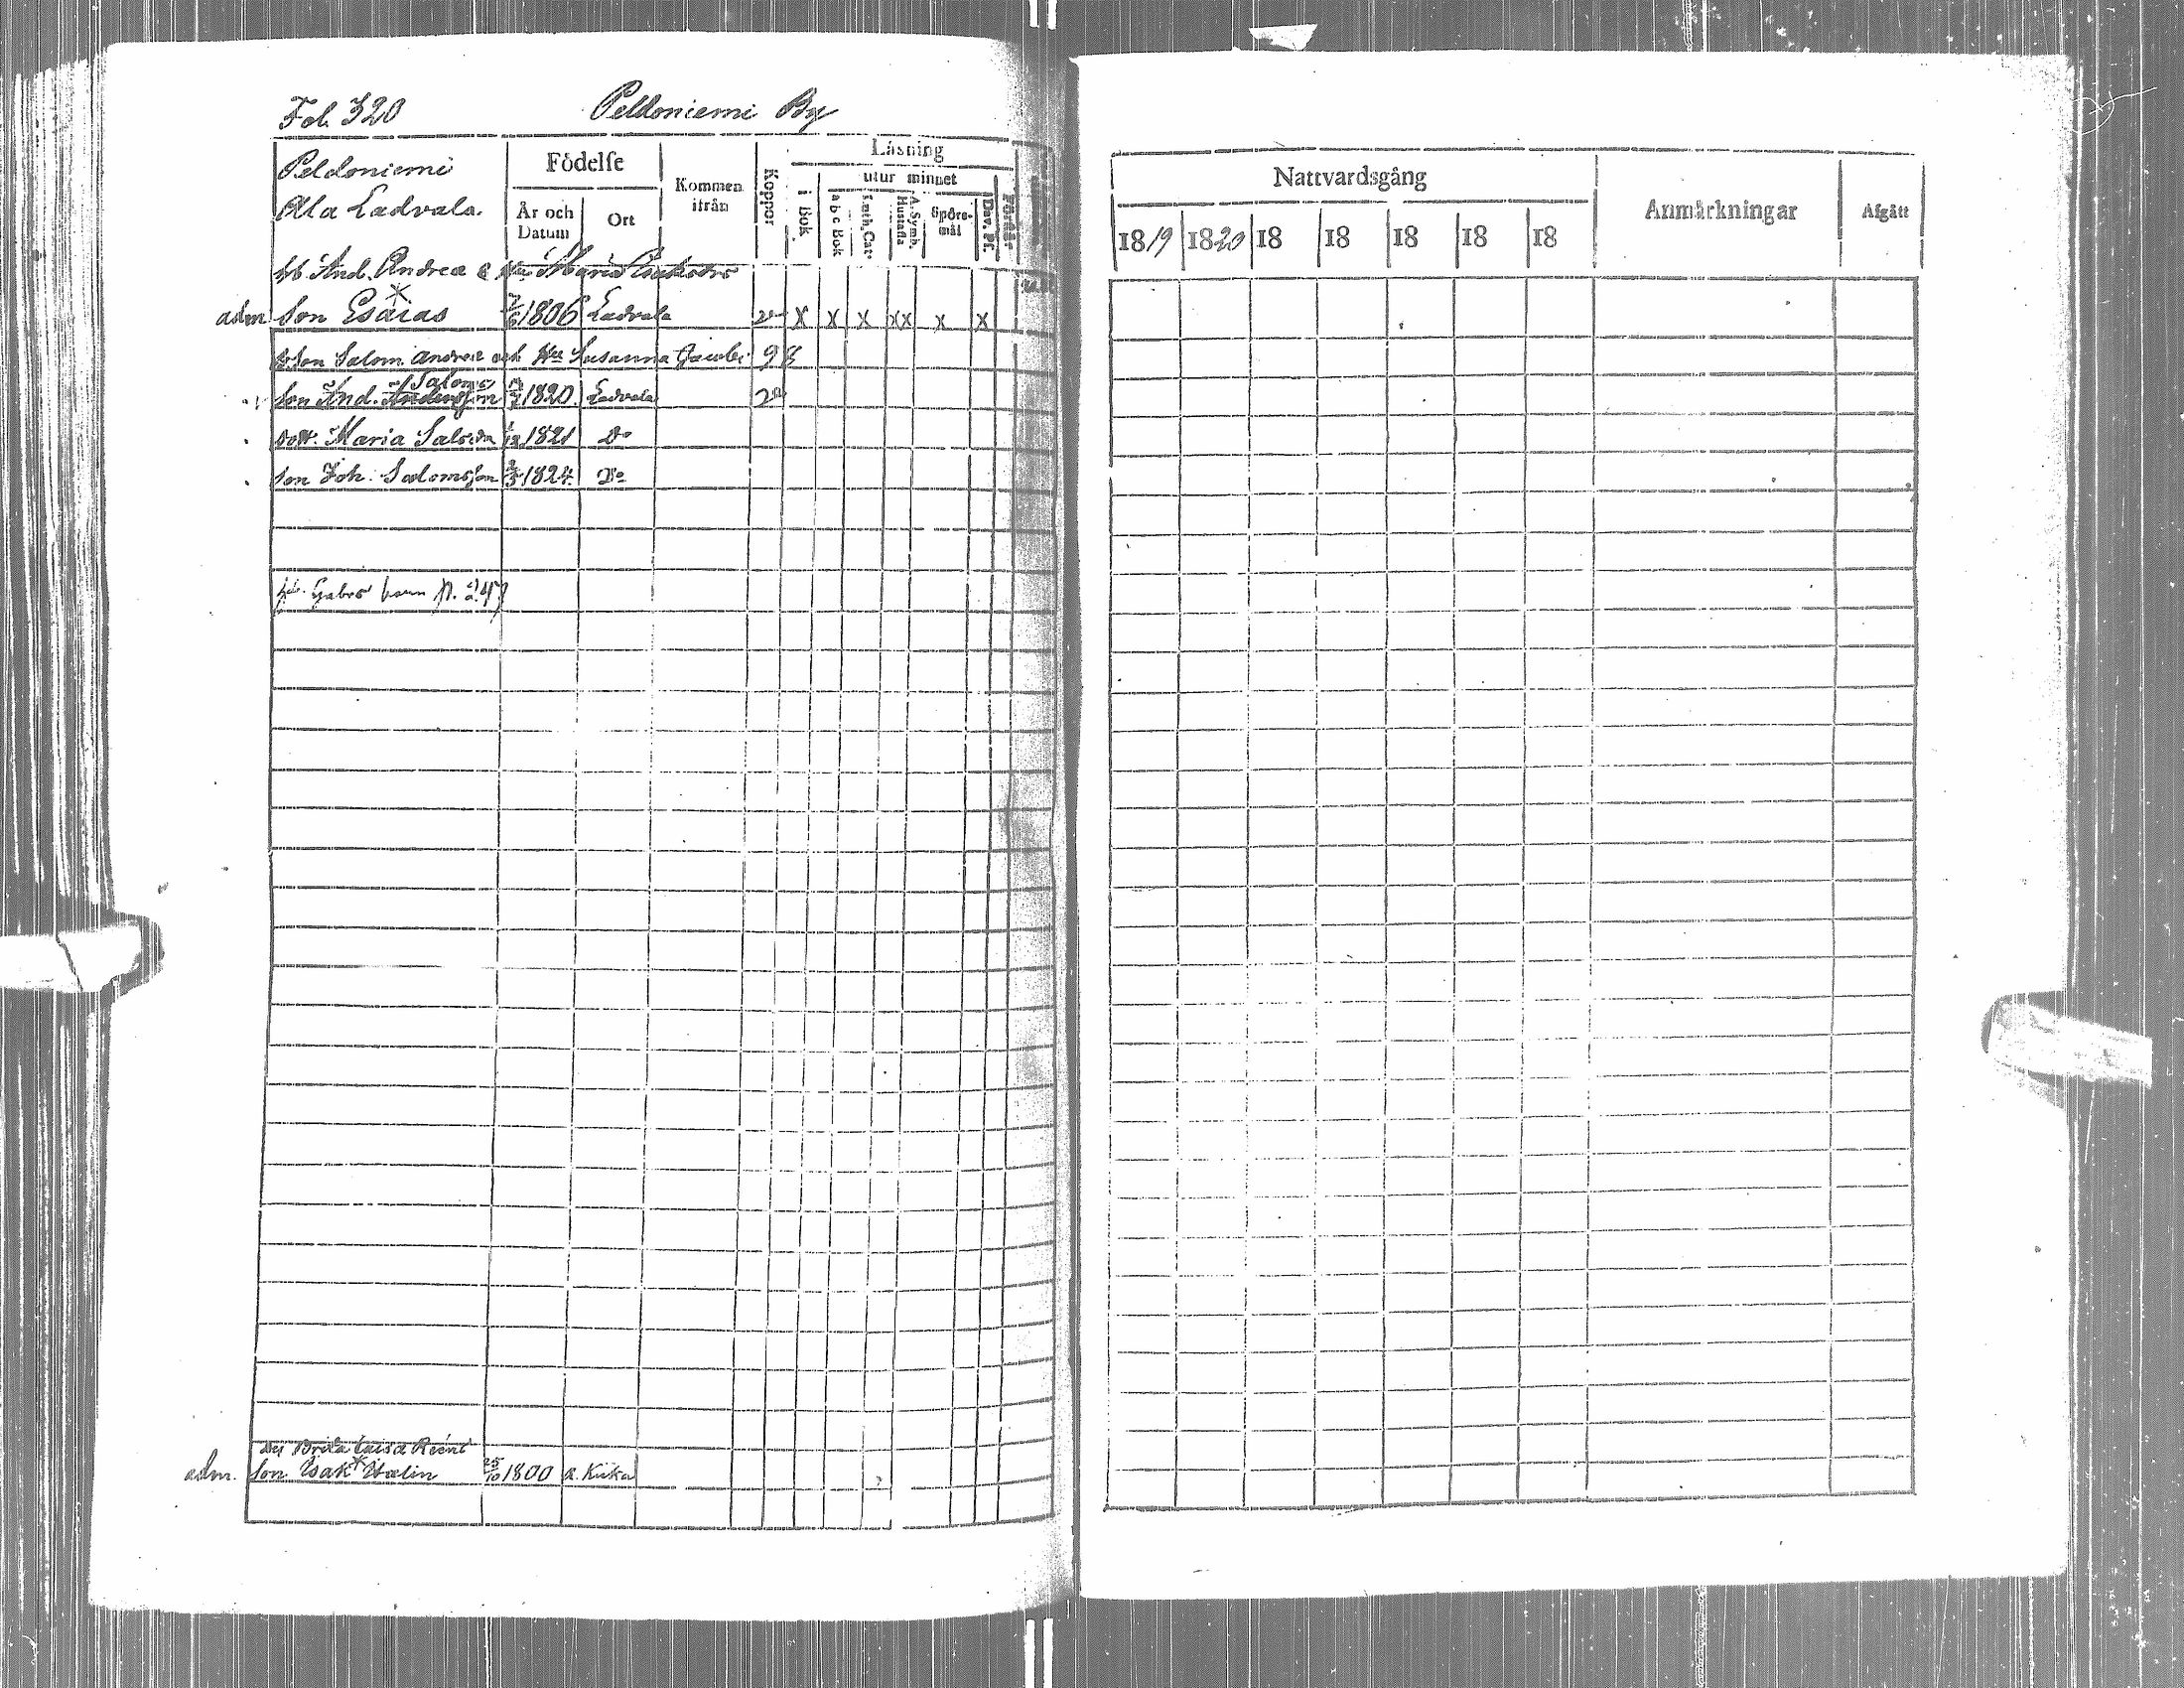 Fol. 320 Peldoniemi By
Peldoniemi
Ala Ladvala.
Födelse
År och Datum
Ort
Kommen ifrån
Koppor
Läsning
i Bok
utur minnet
a b c Bok
Luth. Cat.
A. Symb. Hustafla
Spörsmål
Dav. Ps.
Förstår
bb And. Andrea & Maria
adm son Esaias 1806 Ladvala X X X XX X X
Son Salom. Andreæ och Susanna Jacobs
Saloms
son And. Andersson 1820 Ladvala
dott. Maria 1821 Do
son Joh. Salomsson 1824 Do
barn p. 247
Brita Caisa
adm. son Isak 25/10 1800 Kuka
Nattvardsgång
1819 1820 18 18 18 18 18
Anmärkningar
Afgått